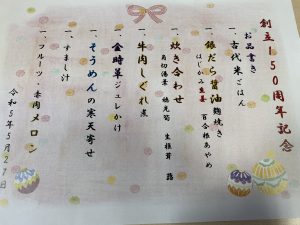 創立150周年記念
お品書き
一、古代米ごはん
一、銀だら醤油麹焼き
はじかみ生姜 百合根あやめ
一、炊き合わせ
角切湯葉 穂先筍 生椎茸 蕗
一、牛肉しぐれ煮
一、金時草ジュレかけ
一、そうめんの寒天寄せ
一、すまし汁
一、フルーツ・赤肉メロン
令和5年5月27日